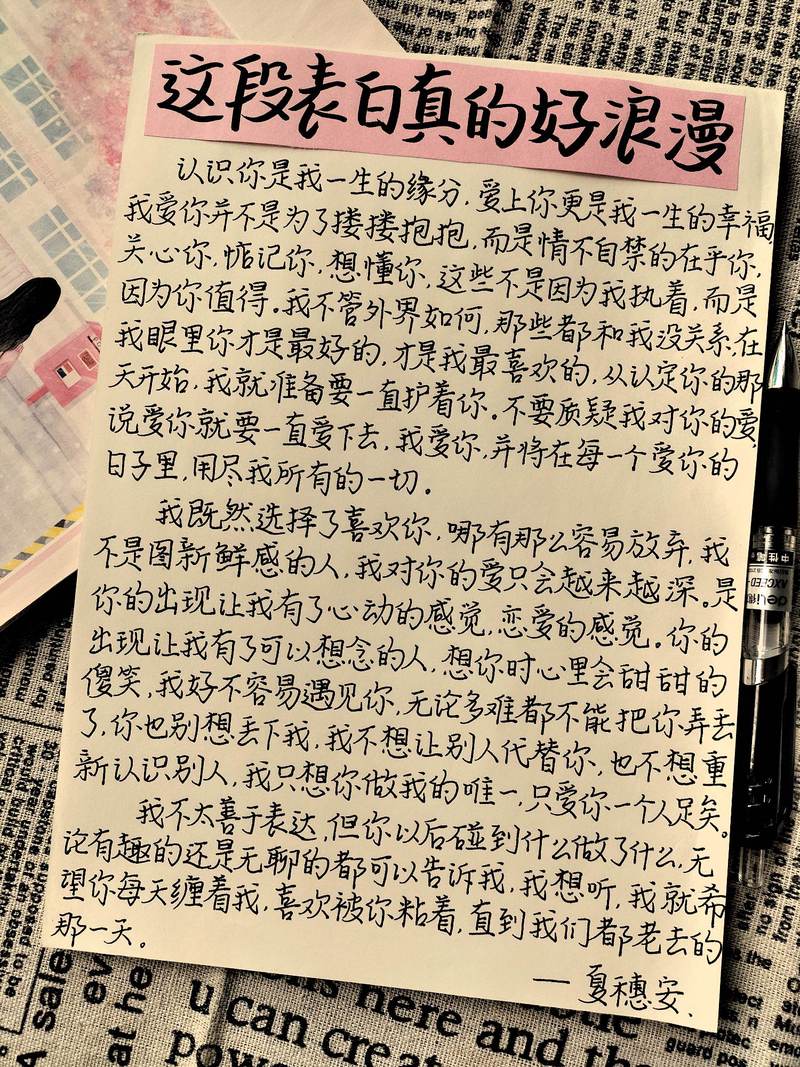 这段表白真的好浪漫
认识你是我一生的缘分，爱上你更是我一生的幸福，
我爱你并不是为了搂搂抱抱，而是情不自禁的在乎你，
关心你，惦记你，想懂你，这些不是因为我执着，而是
因为你值得。我不管外界如何，那些都和我没关系，在
我眼里你才是最好的，才是我最喜欢的，从认定你的那
天开始，我就准备要一直护着你。不要质疑我对你的爱，
说爱你就要一直爱下去，我爱你，并将在每一个爱你的
日子里，用尽我所有的一切。
我既然选择了喜欢你，哪有那么容易放弃，我
不是图新鲜感的人，我对你的爱只会越来越深。是
你的出现让我有了心动的感觉，恋爱的感觉。你的
出现让我有了可以想念的人，想你时心里会甜甜的
傻笑，我好不容易遇见你，无论多难都不能把你弄丢
了，你也别想丢下我，我不想让别人代替你，也不想重
新认识别人，我只想你做我的唯一，只爱你一个人足矣。
我不太善于表达，但你以后碰到什么做了什么，无
论有趣的还是无聊的都可以告诉我，我想听，我就希
望你每天缠着我，喜欢被你粘着，直到我们都老去的
那一天。
— 夏穗安.
deli
中性笔
A sale
at he
u can create